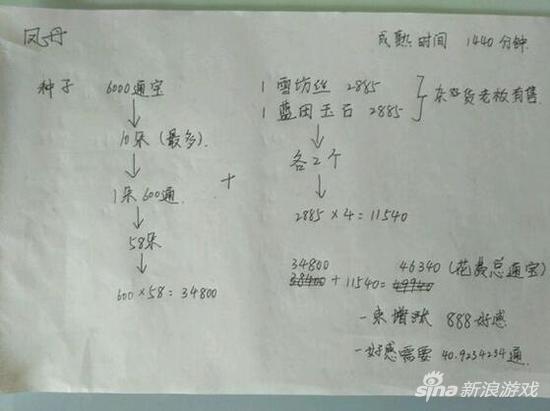 凤丹
成熟时间 1440分钟
种子 6000通宝
↓
10朵(最多).
↓
1朵600通
↓
58朵
↓
600×58=34800
+
1 雪坊丝 2885
1 蓝田玉石 2885
杂货老板有售
↓
各2个
↓
2885×4=11540
34800 46340(花费总通宝)
38400+11540=49940
一束增涨 888好感
一好感需要 40.9234234通.
sina新浪游戏